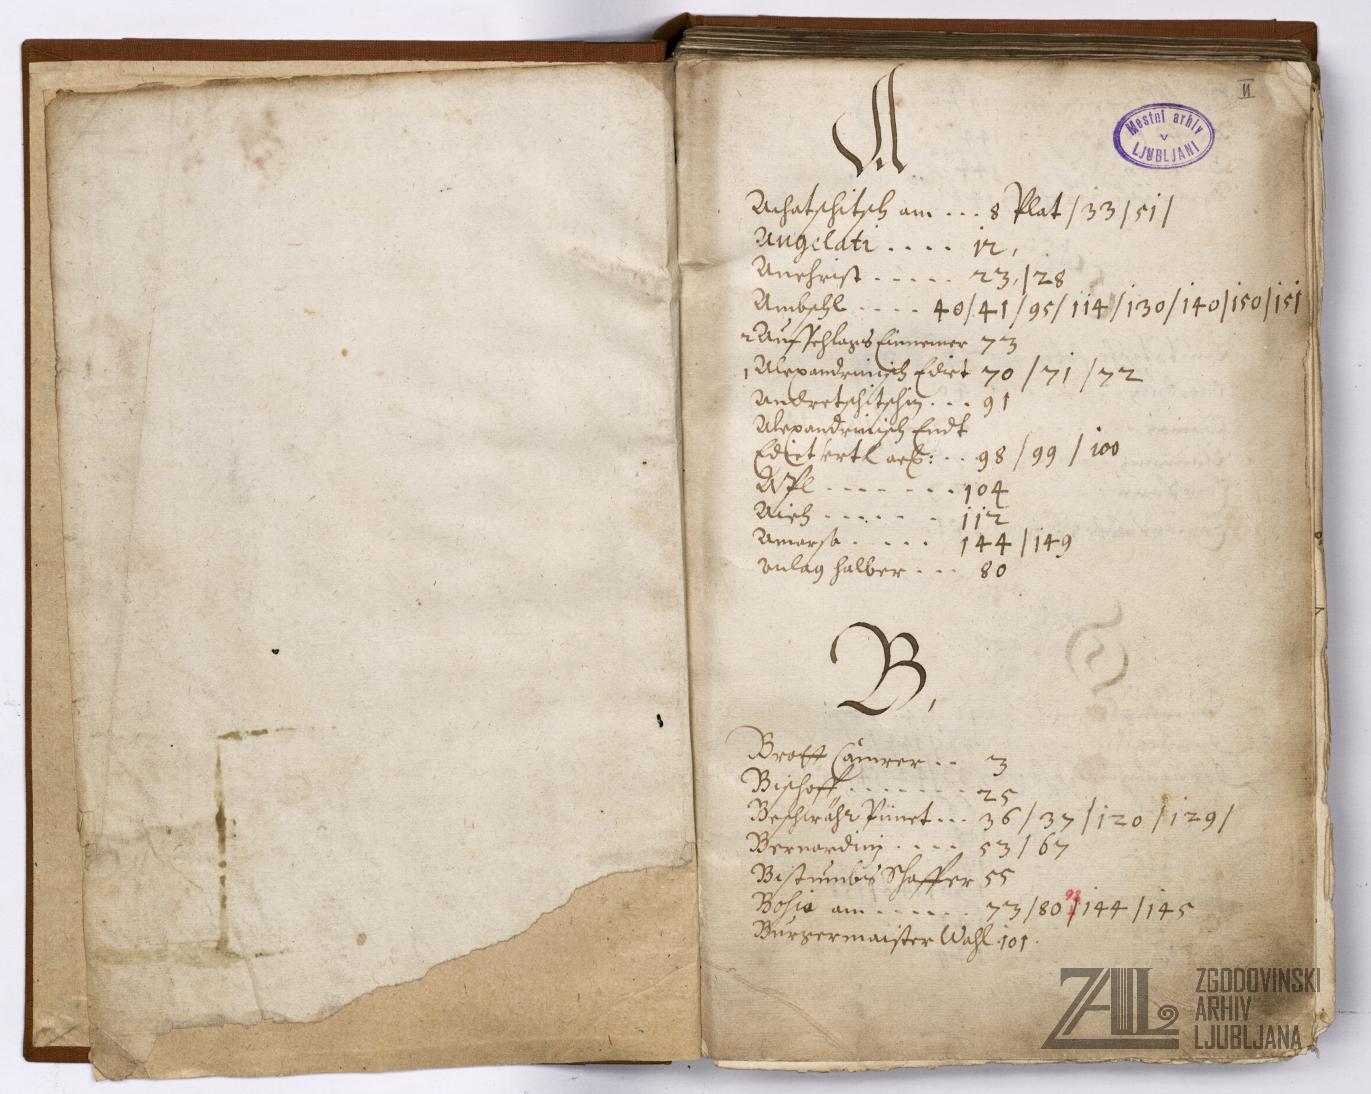 II
Mestni arhiv
v
LJUBLJANI
A
Achatschitsch am ... 8 Plat / 33 / 51 /
Angelati .... 12,
Anehrist ..... 23, / 28
Ambschl .... 40 / 41 / 95 / 114 / 130 / 140 / 150 / 151
2 Aufschlags Einnemer 73
1 Alexandrinisch Edict 70 / 71 / 72
Andretschitschin ... 91
Alexandrinisch Endt
98 / 99 / 100
104
112
144 / 149
Anlag halber ... 80
B,
Brott Camrer .. 3
Bischoff ....... 25
36 / 37 / 120 / 129 /
Bernardini .... 53 / 67
Bistumbs Schaffer 55
98
am ...... 73 / 80 / 144 / 145
Burgermaister Wahl 101.
ZAL ZGODOVINSKI
ARHIV
LJUBLJANA